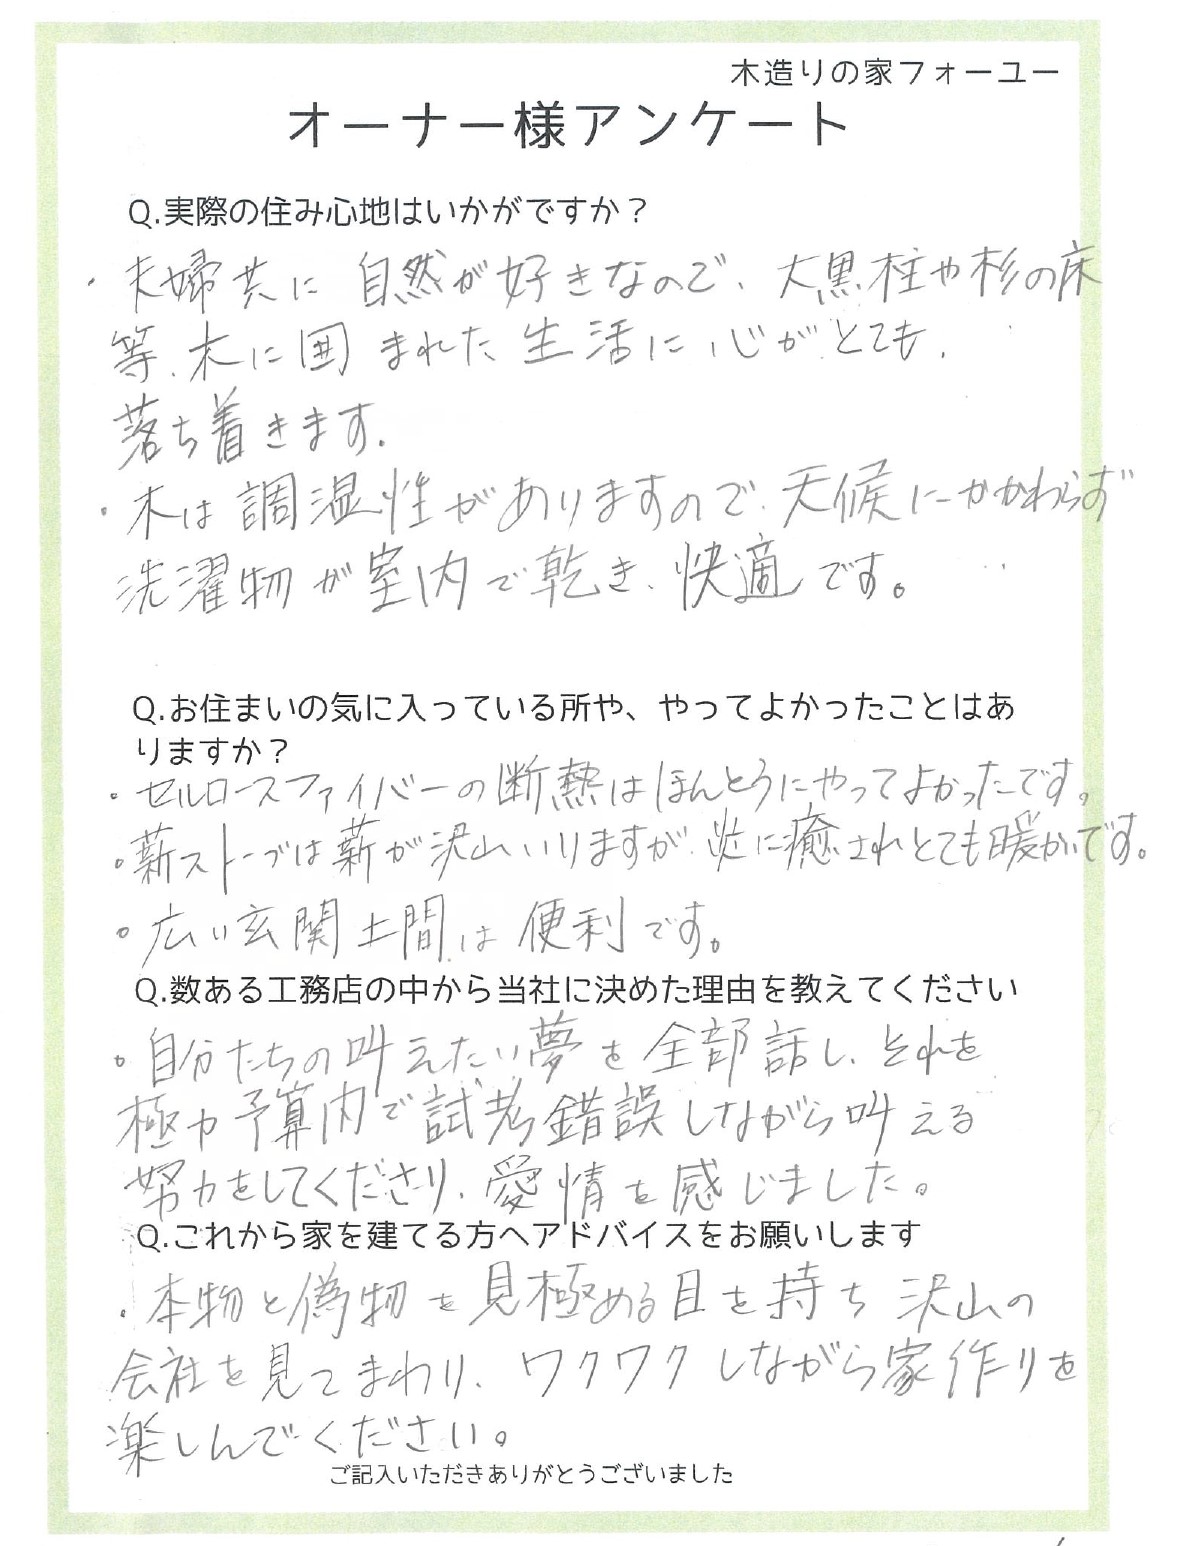 木造りの家フォーユー
オーナー様アンケート
Q.実際の住み心地はいかがですか？
・夫婦共に自然が好きなので、大黒柱や杉の床
等、木に囲まれた生活に心がとても、
落ち着きます.
・木は調湿性がありますので、天候にかかわらず
洗濯物が室内で乾き、快適です。
Q.お住まいの気に入っている所や、やってよかったことはあ
りますか？
・セルロースファイバーの断熱はほんとうにやってよかったです。
・薪ストーブは薪が沢山いりますが、火に癒されとても暖かいです。
・広い玄関土間は便利です。
Q.数ある工務店の中から当社に決めた理由を教えてください
・自分たちの叶えたい夢を全部話し、それを
極力予算内で試考錯誤しながら叶える
努力をしてくださり、愛情を感じました。
Q.これから家を建てる方へアドバイスをお願いします
・本物と偽物を見極める目を持ち沢山の
会社を見てまわり、ワクワクしながら家作りを
楽しんでください。
ご記入いただきありがとうございました